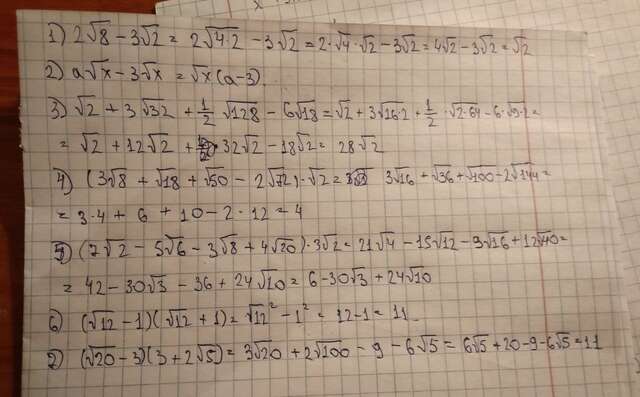 1) 2√8 - 3√2 = 2√4·2 - 3√2 = 2·√4·√2 - 3√2 = 4√2 - 3√2 = √2
2) a√x - 3√x = √x (a-3)
3) √2 + 3√32 + 1/2 √128 - 6√18 = √2 + 3√16·2 + 1/2 · √2·64 - 6·√9·2 =
= √2 + 12√2 + 32√2 - 18√2 = 28√2
4) (3√8 + √18 + √50 - 2√72)·√2 = 3√16 + √36 + √100 - 2√144 =
= 3·4 + 6 + 10 - 2·12 = 4
5) (7√2 - 5√6 - 3√8 + 4√20)·3√2 = 21√4 - 15√12 - 9√16 + 12√40 =
= 42 - 30√3 - 36 + 24√10 = 6 - 30√3 + 24√10
6) (√12 - 1)(√12 + 1) = √12² - 1² = 12 - 1 = 11
7) (√20 - 3)(3 + 2√5) = 3√20 + 2√100 - 9 - 6√5 = 6√5 + 20 - 9 - 6√5 = 11